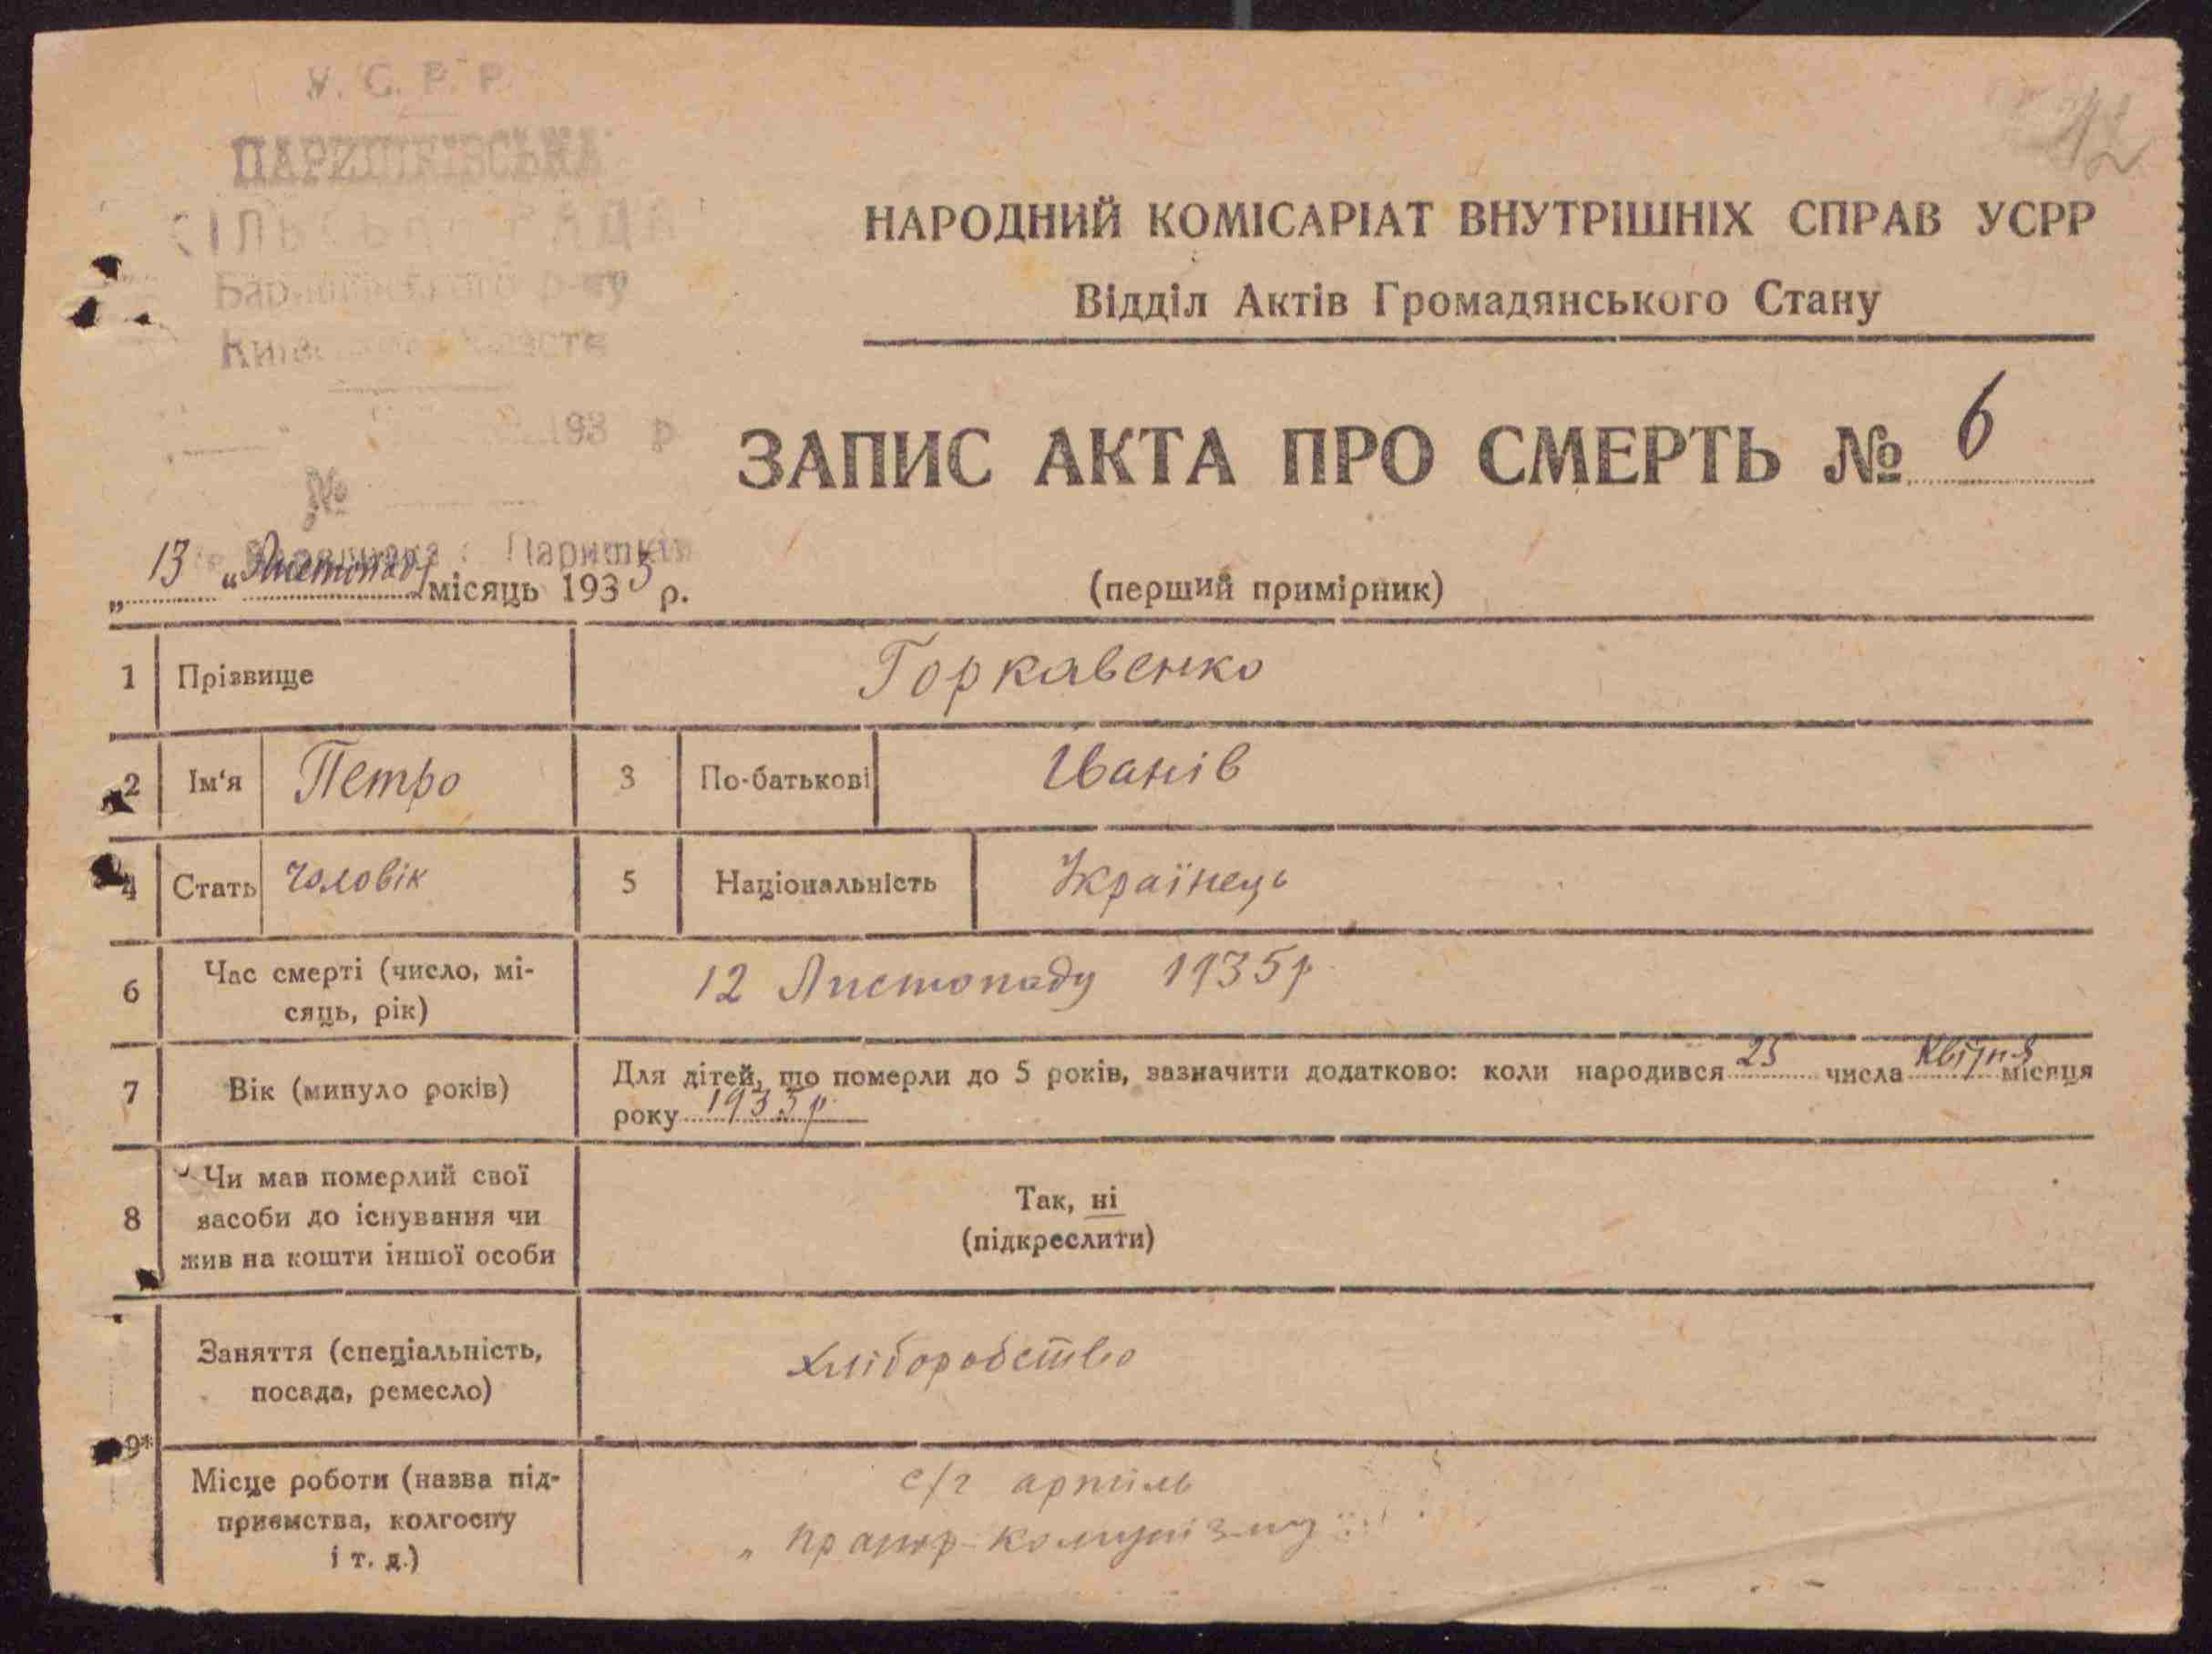 У. С. Р. Р.
ПАРИШКІВСЬКА
СІЛЬСЬКА РАДА
Баришівського р-ну
42
НАРОДНИЙ КОМІСАРІАТ ВНУТРІШНІХ СПРАВ УСРР
Відділ Актів Громадянського Стану
193 р
ЗАПИС АКТА ПРО СМЕРТЬ № 6
№
Паришків
„13“ Листопад місяць 1935 р.
(перший примірник)
1 Прізвище Горкавенко
2 Ім‘я Петро 3 По-батькові Іванів
4 Стать Чоловік 5 Національність Українець
6 Час смерті (число, мі-
сяць, рік) 12 Листопаду 1935р
7 Вік (минуло років) Для дітей, що померли до 5 років, зазначити додатково: коли народився 25 числа Квітня місяця
року 1935р
8 Чи мав померлий свої
засоби до існування чи
жив на кошти іншої особи
Так, ні
(підкреслити)
9* Заняття (спеціальність,
посада, ремесло) хліборобство
Місце роботи (назва під-
приємства, колгоспу
і т. д.)
с/г артіль
„прапор-комунізму“